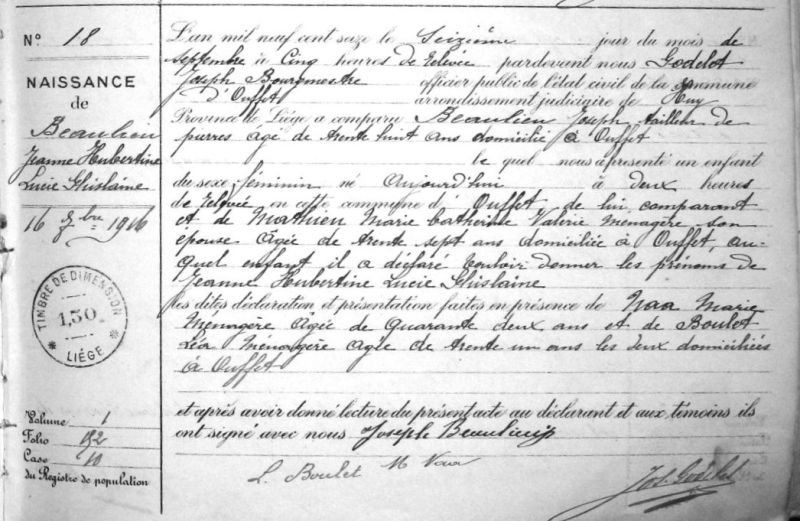 N° 18
NAISSANCE
de
Beaulieu
Jeanne Hubertine
Lucie Ghislaine
16 7bre 1916
TIMBRE DE DIMENSION
1,50
LIÉGE
Volume 1
Folio 192
Case 10
du Registre de population
L'an mil neuf cent seize le Seizième jour du mois de
septembre à Cinq heures de relevée pardevant nous Godelet
Joseph Bourgmestre officier public de l'état civil de la commune
d'Ouffet arrondissement judiciaire de Huy
Province de Liége a comparu Beaulieu Joseph tailleur de
pierres agé de trente huit ans domicilié à Ouffet
le quel nous a présenté un enfant
du sexe féminin né aujourd'hui à deux heures
de relevée en cette commune d'Ouffet, de lui comparant
et de Mathieu Marie Catherine Valérie Ménagère son
épouse Agée de trente sept ans domiciliée à Ouffet, au-
quel enfant il a déclaré vouloir donner les prénoms de
Jeanne Hubertine Lucie Ghislaine
les dites déclaration et présentation faites en présence de Naa Marie
Ménagère Agée de Quarante deux ans et de Boulet
Léa Ménagère agée de trente un ans les deux domiciliés
à Ouffet
et après avoir donné lecture du présent acte au déclarant et aux témoins ils
ont signé avec nous Joseph Beaulieu
L. Boulet M Naa
Jos. Godelet